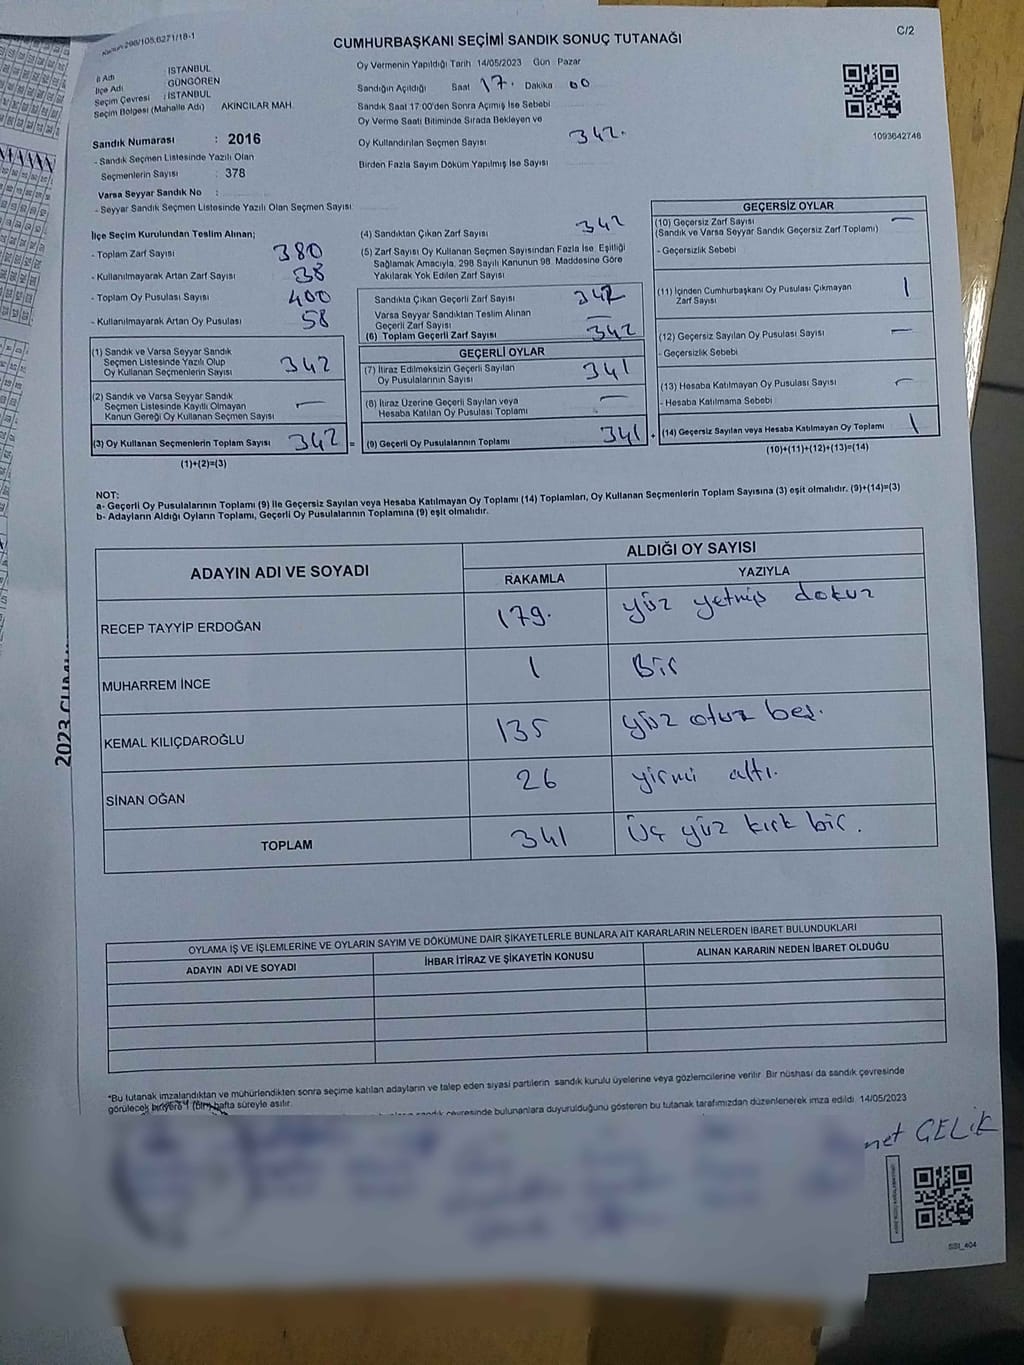 Kanun 298/105,6271/18-1
CUMHURBAŞKANI SEÇİMİ SANDIK SONUÇ TUTANAĞI
C/2
İl Adı : İSTANBUL
İlçe Adı : GÜNGÖREN
Seçim Çevresi : İSTANBUL
Seçim Bölgesi (Mahalle Adı) AKINCILAR MAH.
Oy Vermenin Yapıldığı Tarih 14/05/2023 Gün : Pazar
Sandığın Açıldığı Saat 17. Dakika 00
Sandık Saat 17:00'den Sonra Açımış İse Sebebi
Oy Verme Saati Bitiminde Sırada Bekleyen ve
Oy Kullandırılan Seçmen Sayısı 342.
Birden Fazla Sayım Döküm Yapılmış İse Sayısı
1093642746
Sandık Numarası : 2016
- Sandık Seçmen Listesinde Yazılı Olan
Seçmenlerin Sayısı : 378
Varsa Seyyar Sandık No :
- Seyyar Sandık Seçmen Listesinde Yazılı Olan Seçmen Sayısı:
İlçe Seçim Kurulundan Teslim Alınan;
- Toplam Zarf Sayısı 380
- Kullanılmayarak Artan Zarf Sayısı 38
- Toplam Oy Pusulası Sayısı 400
- Kullanılmayarak Artan Oy Pusulası 58
(1) Sandık ve Varsa Seyyar Sandık
Seçmen Listesinde Yazılı Olup
Oy Kullanan Seçmenlerin Sayısı 342
(2) Sandık ve Varsa Seyyar Sandık
Seçmen Listesinde Kayıtlı Olmayan
Kanun Gereği Oy Kullanan Seçmen Sayısı —
(3) Oy Kullanan Seçmenlerin Toplam Sayısı 342 =
(1)+(2)=(3)
(4) Sandıktan Çıkan Zarf Sayısı 342
(5) Zarf Sayısı Oy Kullanan Seçmen Sayısından Fazla İse, Eşitliği
Sağlamak Amacıyla, 298 Sayılı Kanunun 98. Maddesine Göre
Yakılarak Yok Edilen Zarf Sayısı
Sandıkta Çıkan Geçerli Zarf Sayısı 342
Varsa Seyyar Sandıktan Teslim Alınan
Geçerli Zarf Sayısı —
(6) Toplam Geçerli Zarf Sayısı 342
GEÇERLİ OYLAR
(7) İtiraz Edilmeksizin Geçerli Sayılan
Oy Pusulalarının Sayısı 341
(8) İtiraz Üzerine Geçerli Sayılan veya
Hesaba Katılan Oy Pusulası Toplamı —
(9) Geçerli Oy Pusulalarının Toplamı 341 +
GEÇERSİZ OYLAR
(10) Geçersiz Zarf Sayısı —
(Sandık ve Varsa Seyyar Sandık Geçersiz Zarf Toplamı)
- Geçersizlik Sebebi
(11) İçinden Cumhurbaşkanı Oy Pusulası Çıkmayan
Zarf Sayısı 1
(12) Geçersiz Sayılan Oy Pusulası Sayısı —
- Geçersizlik Sebebi
(13) Hesaba Katılmayan Oy Pusulası Sayısı —
- Hesaba Katılmama Sebebi
(14) Geçersiz Sayılan veya Hesaba Katılmayan Oy Toplamı 1
(10)+(11)+(12)+(13)=(14)
NOT:
a- Geçerli Oy Pusulalarının Toplamı (9) ile Geçersiz Sayılan veya Hesaba Katılmayan Oy Toplamı (14) Toplamları, Oy Kullanan Seçmenlerin Toplam Sayısına (3) eşit olmalıdır. (9)+(14)=(3)
b- Adayların Aldığı Oyların Toplamı, Geçerli Oy Pusulalarının Toplamına (9) eşit olmalıdır.
ADAYIN ADI VE SOYADI
ALDIĞI OY SAYISI
RAKAMLA YAZIYLA
RECEP TAYYİP ERDOĞAN 179. yüz yetmiş dokuz
MUHARREM İNCE 1 Bir
KEMAL KILIÇDAROĞLU 135 yüz otuz beş.
SİNAN OĞAN 26 yirmi altı.
TOPLAM 341 Üç yüz kırk bir.
OYLAMA İŞ VE İŞLEMLERİNE VE OYLARIN SAYIM VE DÖKÜMÜNE DAİR ŞİKAYETLERLE BUNLARA AİT KARARLARIN NELERDEN İBARET BULUNDUKLARI
ADAYIN ADI VE SOYADI İHBAR İTİRAZ VE ŞİKAYETİN KONUSU ALINAN KARARIN NEDEN İBARET OLDUĞU
*Bu tutanak imzalandıktan ve mühürlendikten sonra seçime katılan adayların ve talep eden siyasi partilerin sandık kurulu üyelerine veya gözlemcilerine verilir. Bir nüshası da sandık çevresinde
görülecek bir yere 1 (bir) hafta süreyle asılır.
sandık çevresinde bulunanlara duyurulduğunu gösteren bu tutanak tarafımızdan düzenlenerek imza edildi. 14/05/2023
met ÇELİK
SSI_404
2023 CUMHU